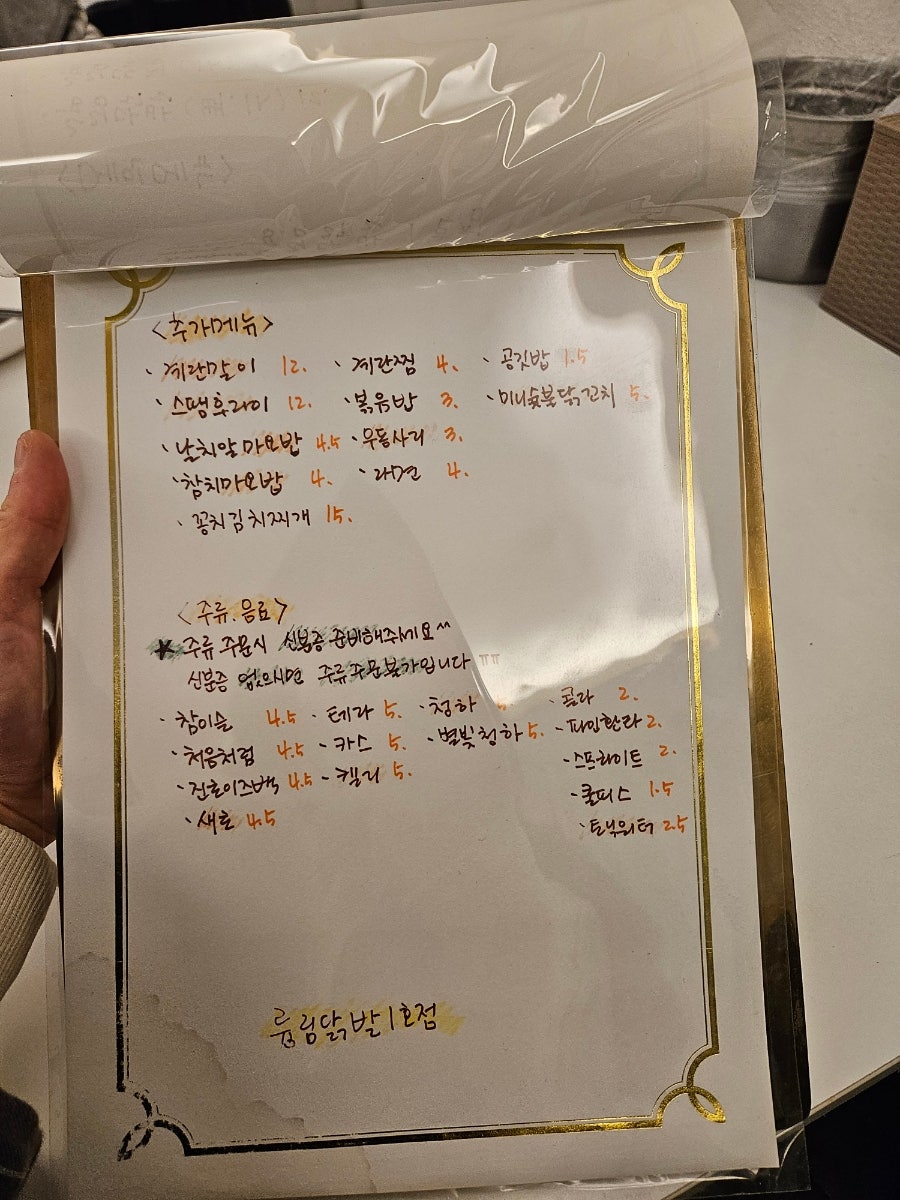 <추가메뉴>
· 계란말이 12. · 계란찜 4. · 공깃밥 1.5
· 스팸후라이 12. · 볶음밥 3. · 미니숯불닭꼬치 5.
· 날치알마요밥 4.5 · 우동사리 3.
· 참치마요밥 4. · 라면 4.
· 꽁치김치찌개 15.
<주류.음료>
★ 주류 주문시 신분증 준비해주세요^^
신분증 없으시면 주류주문불가입니다 ㅠㅠ
· 참이슬 4.5 · 테라 5. · 청하 · 콜라 2.
· 처음처럼 4.5 · 카스 5. · 별빛청하 5. · 파인환타 2.
· 진로이즈백 4.5 · 켈리 5. · 스프라이트 2.
· 새로 4.5 · 쿨피스 1.5
· 토닉워터 2.5
림닭발 1호점